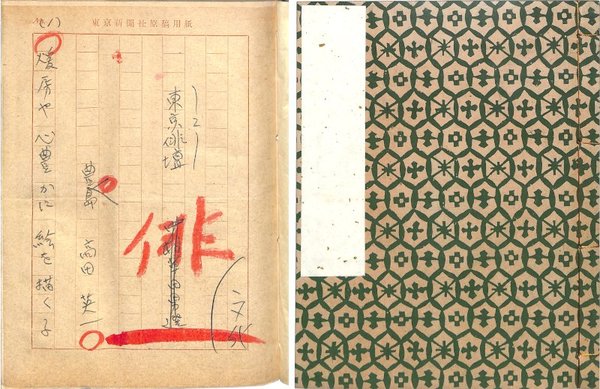 東京新聞社原稿用紙
(文化)
俳
―2―
東京俳壇
豊島 高田 英一
(1)
煖房や 心豊かに 絵を描く子